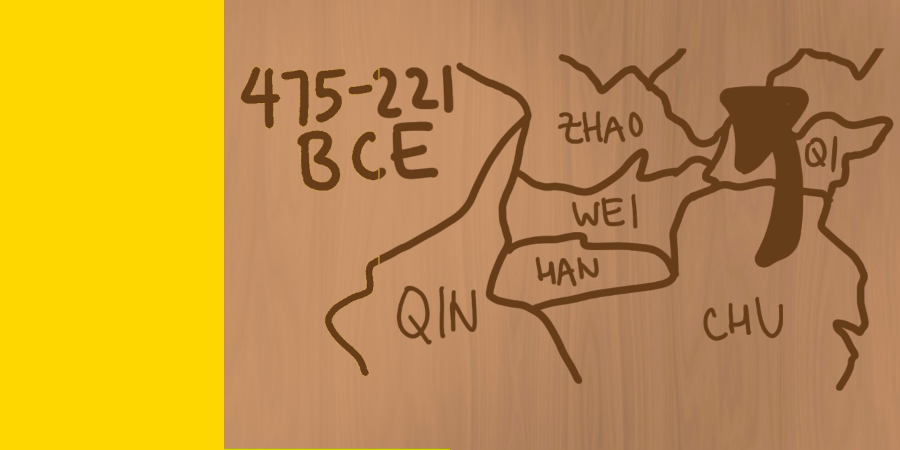 475-221
BCE
ZHAO
QI
WEI
HAN
QIN
CHU